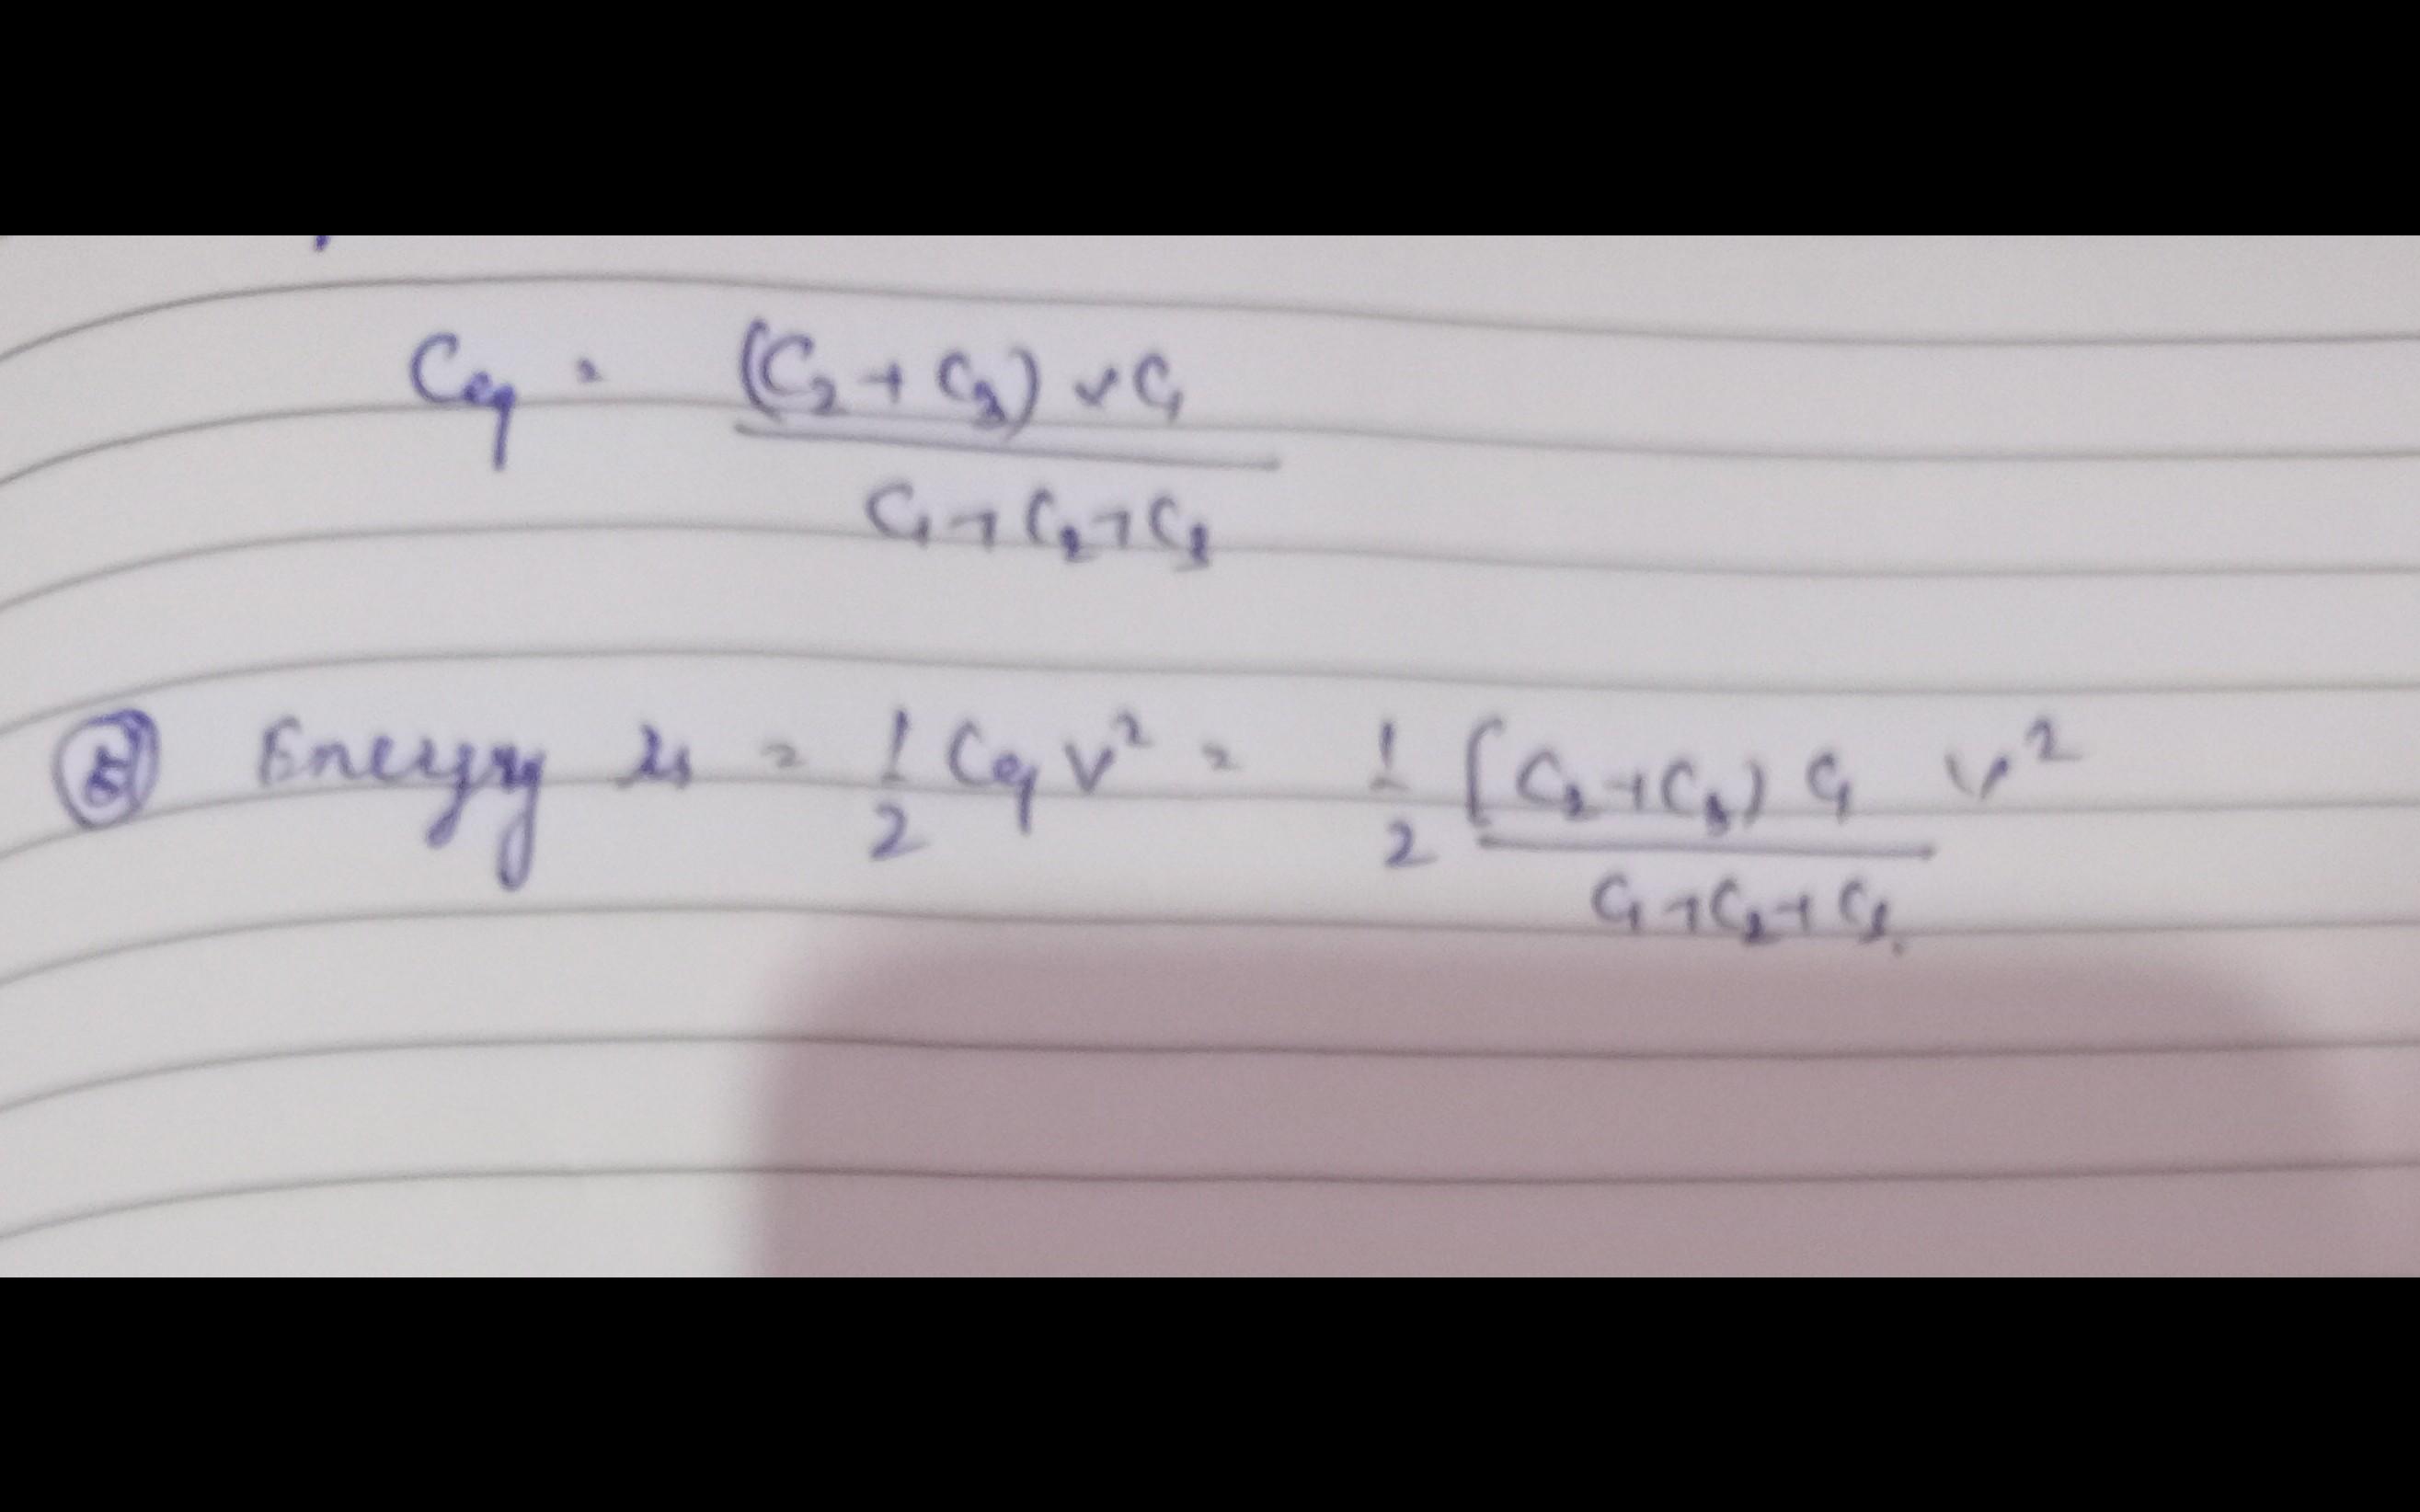 Ceq = (C2 + C3) × C1
C1 + C2 + C3
⑤ Energy is = 1/2 Ceq V² = 1/2 [C2 + C3) C1 V²
C1 + C2 + C3.